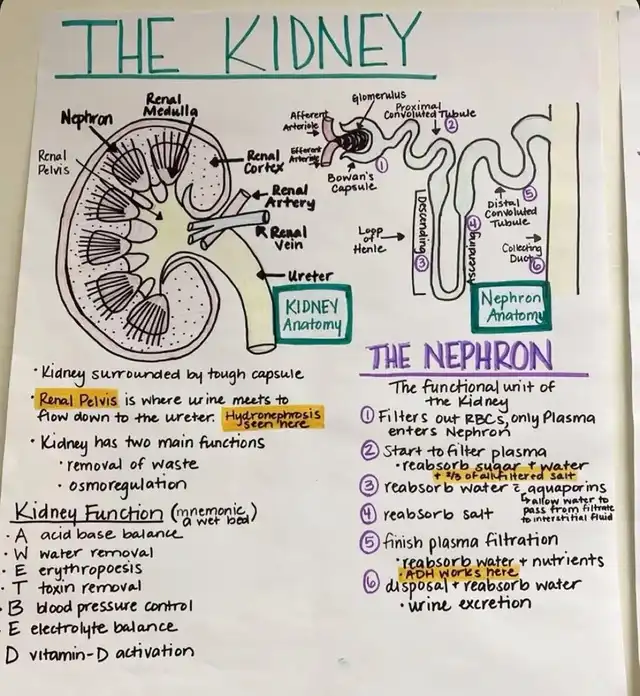 THE KIDNEY
Nephron
Renal
Medulla
Renal
Pelvis
Renal
Cortex
Renal
Artery
Renal
Vein
Ureter
KIDNEY
Anatomy
Afferent
Arteriole
Efferent
Arteriole
Glomerulus
Bowan's
Capsule
①
Proximal
Convoluted Tubule
②
Loop
of
Henle
Descending
③
④
Ascending
Distal
Convoluted
Tubule
⑤
Collecting
Duct
⑥
Nephron
Anatomy
· Kidney surrounded by tough capsule
· Renal Pelvis is where urine meets to
flow down to the ureter. Hydronephrosis
seen here
· Kidney has two main functions
· removal of waste
· osmoregulation
Kidney Function (mnemonic
a wet bed)
· A acid base balance
· W water removal
· E erythropoesis
· T toxin removal
· B blood pressure control
· E electrolyte balance
D vitamin-D activation
THE NEPHRON
The functional unit of
the Kidney
① Filters out RBCs, only Plasma
enters Nephron
② Start to filter plasma
· reabsorb sugar + water
+ 2/3 of all filtered salt
③ reabsorb water c̄ aquaporins
↳ allow water to
pass from filtrate
to interstitial fluid
④ reabsorb salt
⑤ finish plasma filtration
· reabsorb water + nutrients
· ADH works here
⑥ disposal + reabsorb water
· urine excretion